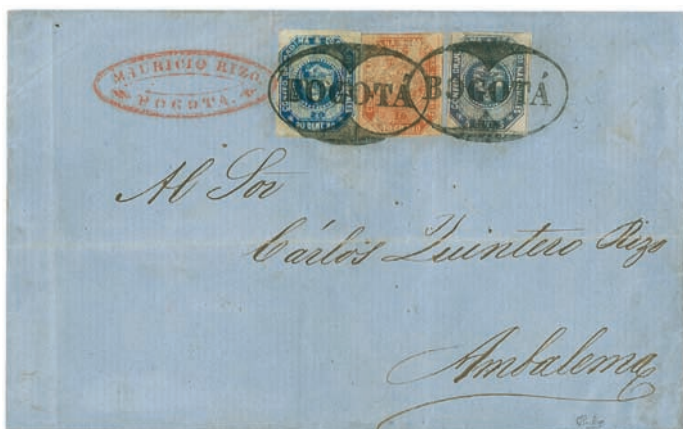 MAURICIO RIZO.
BOGOTÁ.
BOGOTÁ
BOGOTÁ
Al Sor
Cárlos Quintero Rizo
Ambalema